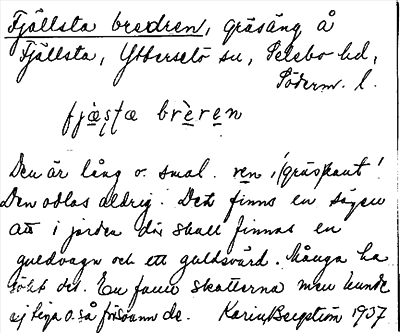 Fjällsta bredren, gräsäng å
Fjällsta, Ytterselö sn, Selebo hd,
Söderm. l.
fjæ̀sta brèren
Den är lång o. smal. ren, (gräs)kant!
Den odlas aldrig. Det finns en sägen
att i jorden där skall finnas en
guldvagn och ett guldsvärd. Många ha
sökt det. En fann skatterna men kunde
ej tiga o. så försvann de. Karin Bergström 1937